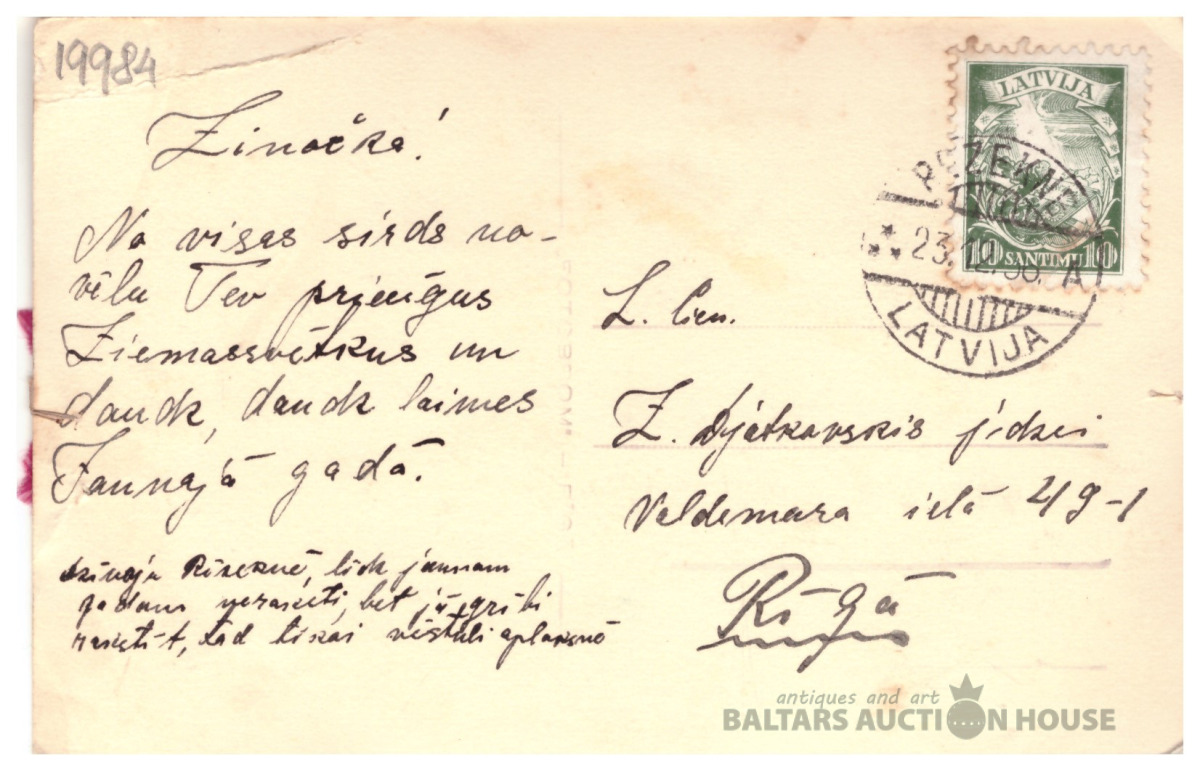 19984
Zinočka!
No visas sirds no-
vēlu Tev priecīgus
Ziemassvētkus un
daudz, daudz laimes
Jaunajā gadā.
Rēzeknē, līdz jaunam
gadam neraksti, bet ja gribi
rakstīt, tad tikai vēstuli aploksnē
LATVIJA
10 SANTIMU 10
RĒZEKNE
23.12.36. A
LATVIJA
L. cien.
Z. Djatkovskis jkdzei
Valdemāra ielā 49-1
Rīgā
antiques and art
BALTARS AUCTION HOUSE